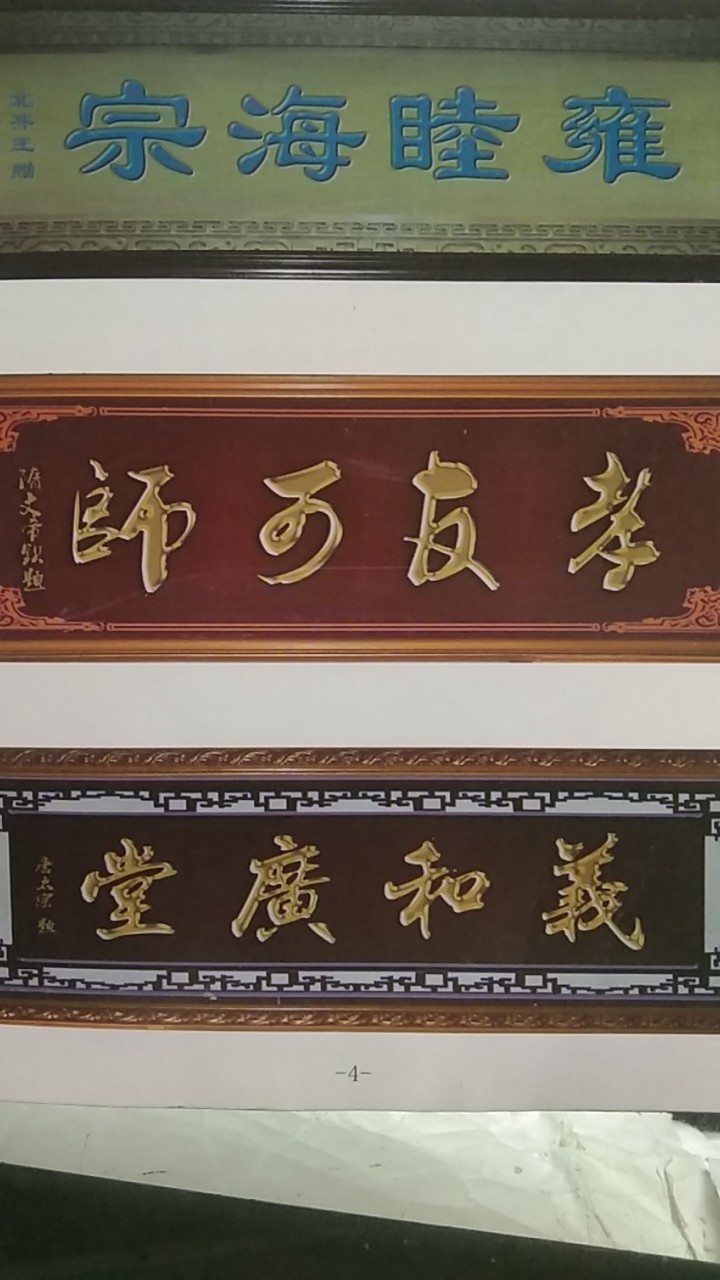 雍睦海宗
北齐王赠
孝友可師
隋文帝欽題
義和廣堂
唐太宗 題
-4-